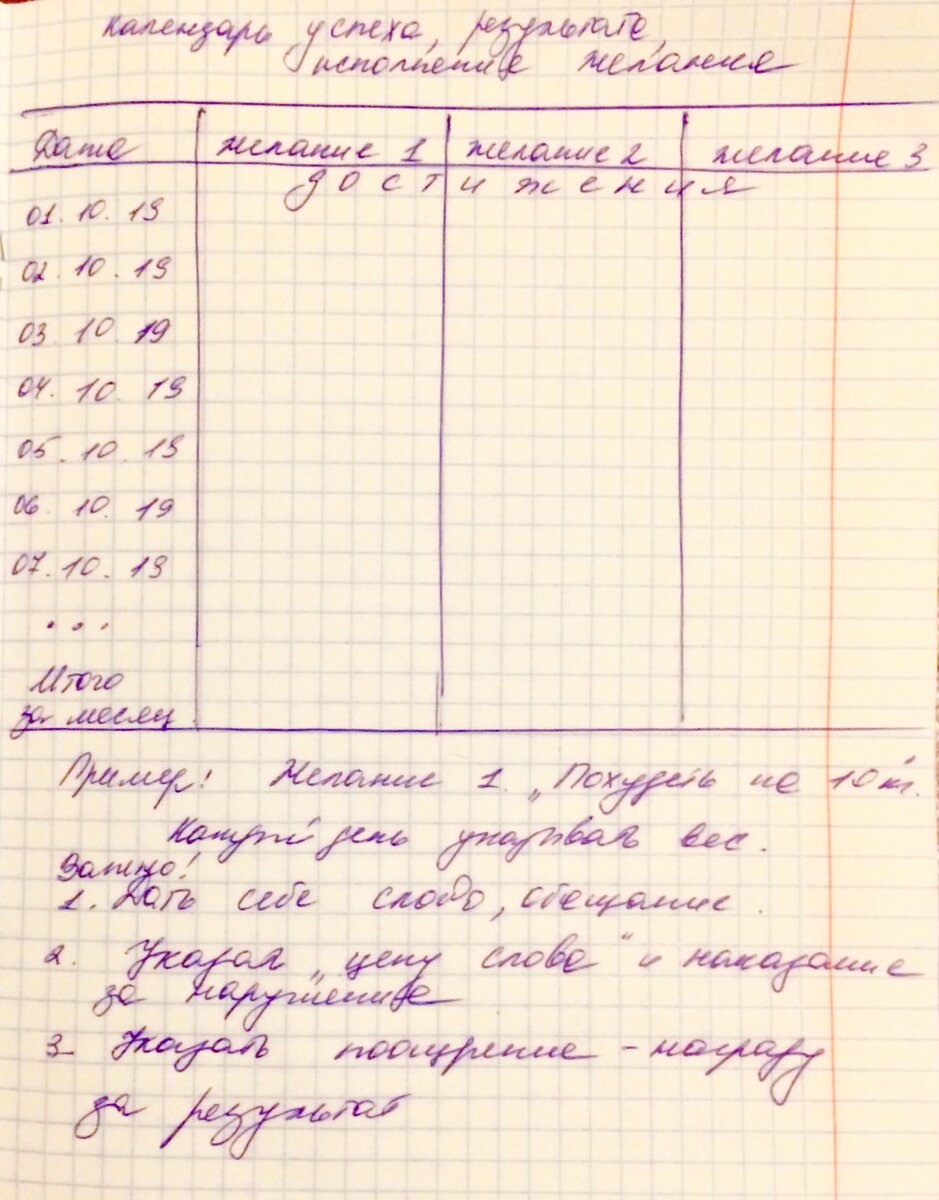 Календарь успеха, результата,
исполнение желания
Дата желание 1 желание 2 желание 3
достижения
01.10.19
02.10.19
03.10.19
04.10.19
05.10.19
06.10.19
07.10.19
...
Итого
за месяц
Пример: Желание 1. „Похудеть на 10 кг.
Каждый день указывать вес.
Важно!
1. Дать себе слово, обещание.
2. Указать „цену слова“ и наказание
за нарушение
3 Указать поощрение - награду
за результат